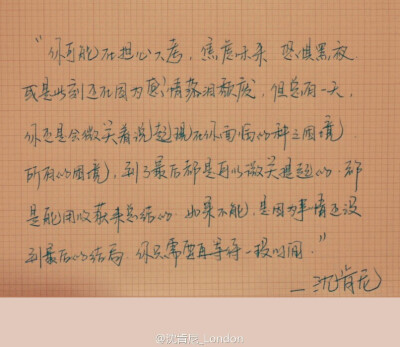 “你可能在担心大考，焦虑未来，恐惧黑夜
或是此刻还在因为感情落泪颓废，但总有一天，
你还是会微笑着说起现在你面临的种种困境，
所有的困境，到了最后都是可以微笑提起的，都
是能用收获来总结的，如果不能，是因为事情还没
到最后的结局，你只需要再等待一段时间。”
—沈肯尼
@沈肯尼_London